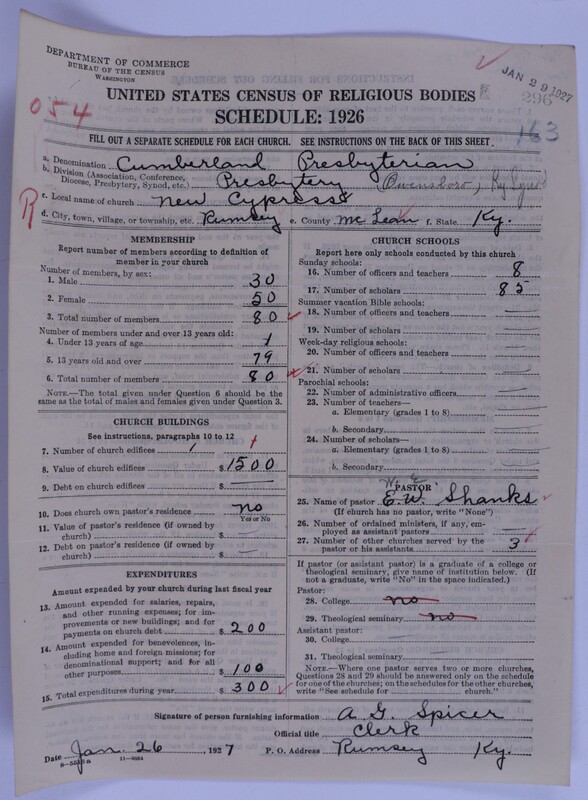 DEPARTMENT OF COMMERCE
BUREAU OF THE CENSUS
WASHINGTON
JAN 29 1927
296
054
163
UNITED STATES CENSUS OF RELIGIOUS BODIES
SCHEDULE: 1926
FILL OUT A SEPARATE SCHEDULE FOR EACH CHURCH. SEE INSTRUCTIONS ON THE BACK OF THIS SHEET
a. Denomination Cumberland Presbyterian
b. Division (Association, Conference, Diocese, Presbytery, Synod, etc.) Presbytery Owensboro, Ky
R
c. Local name of church New Cypress
d. City, town, village, or township, etc. Rumsey e. County McLean f. State Ky.
MEMBERSHIP
Report number of members according to definition of
member in your church
Number of members, by sex:
1. Male 30
2. Female 50
3. Total number of members 80
Number of members under and over 13 years old:
4. Under 13 years of age 1
5. 13 years old and over 79
6. Total number of members 80
NOTE.—The total given under Question 6 should be
the same as the total of males and females given under Question 3.
CHURCH BUILDINGS
See instructions, paragraphs 10 to 12
7. Number of church edifices 1 1
8. Value of church edifices $1500
9. Debt on church edifices $
10. Does church own pastor's residence? no
Yes or No
11. Value of pastor's residence (if owned by
church) $
12. Debt on pastor's residence (if owned by
church) $
EXPENDITURES
Amount expended by your church during last fiscal year
13. Amount expended for salaries, repairs,
and other running expenses; for im-
provements or new buildings; and for
payments on church debt $200
14. Amount expended for benevolences, in-
cluding home and foreign missions; for
denominational support; and for all
other purposes $100
15. Total expenditures during year $300
CHURCH SCHOOLS
Report here only schools conducted by this church
Sunday schools:
16. Number of officers and teachers 8
17. Number of scholars 85
Summer vacation Bible schools:
18. Number of officers and teachers
19. Number of scholars
Week-day religious schools:
20. Number of officers and teachers
21. Number of scholars
Parochial schools:
22. Number of administrative officers
23. Number of teachers—
a. Elementary (grades 1 to 8)
b. Secondary
24. Number of scholars—
a. Elementary (grades 1 to 8)
b. Secondary
PASTOR
25. Name of pastor E. W. Shanks
(If church has no pastor, write "None")
26. Number of ordained ministers, if any, em-
ployed as assistant pastors
27. Number of other churches served by the
pastor or his assistants 3
If pastor (or assistant pastor) is a graduate of a college or
theological seminary, give name of institution below. (If
not a graduate, write "No" in the space indicated.)
Pastor:
28. College no
29. Theological seminary no
Assistant pastor:
30. College
31. Theological seminary
NOTE.—Where one pastor serves two or more churches,
Questions 28 and 29 should be answered only on the schedule
for one of the churches; on the schedules for the other churches,
write "See schedule for church."
Signature of person furnishing information A G. Spicer
Official title Clerk
Date Jan. 26, 1927 P. O. Address Rumsey Ky.